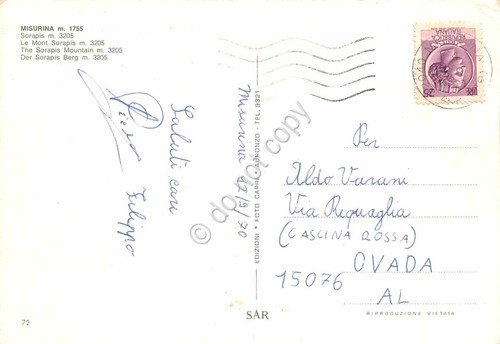 MISURINA m. 1755
Sorapis m. 3205
Le Mont Sorapis m. 3205
The Sorapis Mountain m. 3205
Der Sorapis Berg m. 3205
Saluti cari
Filippo
Misurina 12/9/70
EDIZIONI • FOTO CAPRI - AURONZO - TEL. 9321
do not copy
REPUBBLICA
ITALIANA
Per
Aldo Varani
Via Requaglia
(CASCINA ROSSA)
15076 OVADA
AL
SAR
RIPRODUZIONE VIETATA
72